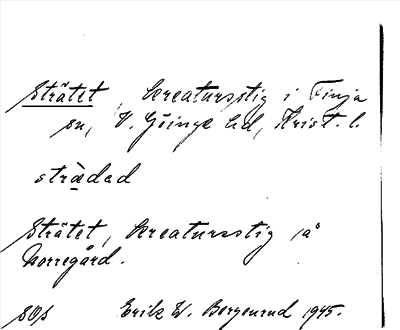 Strätet, kreatursstig i Finja
sn, V. Göinge hd, Krist. l.
strädad
Strätet, kreatursstig på
Norregård.
SOs Erik W. Bergenrud 1945.